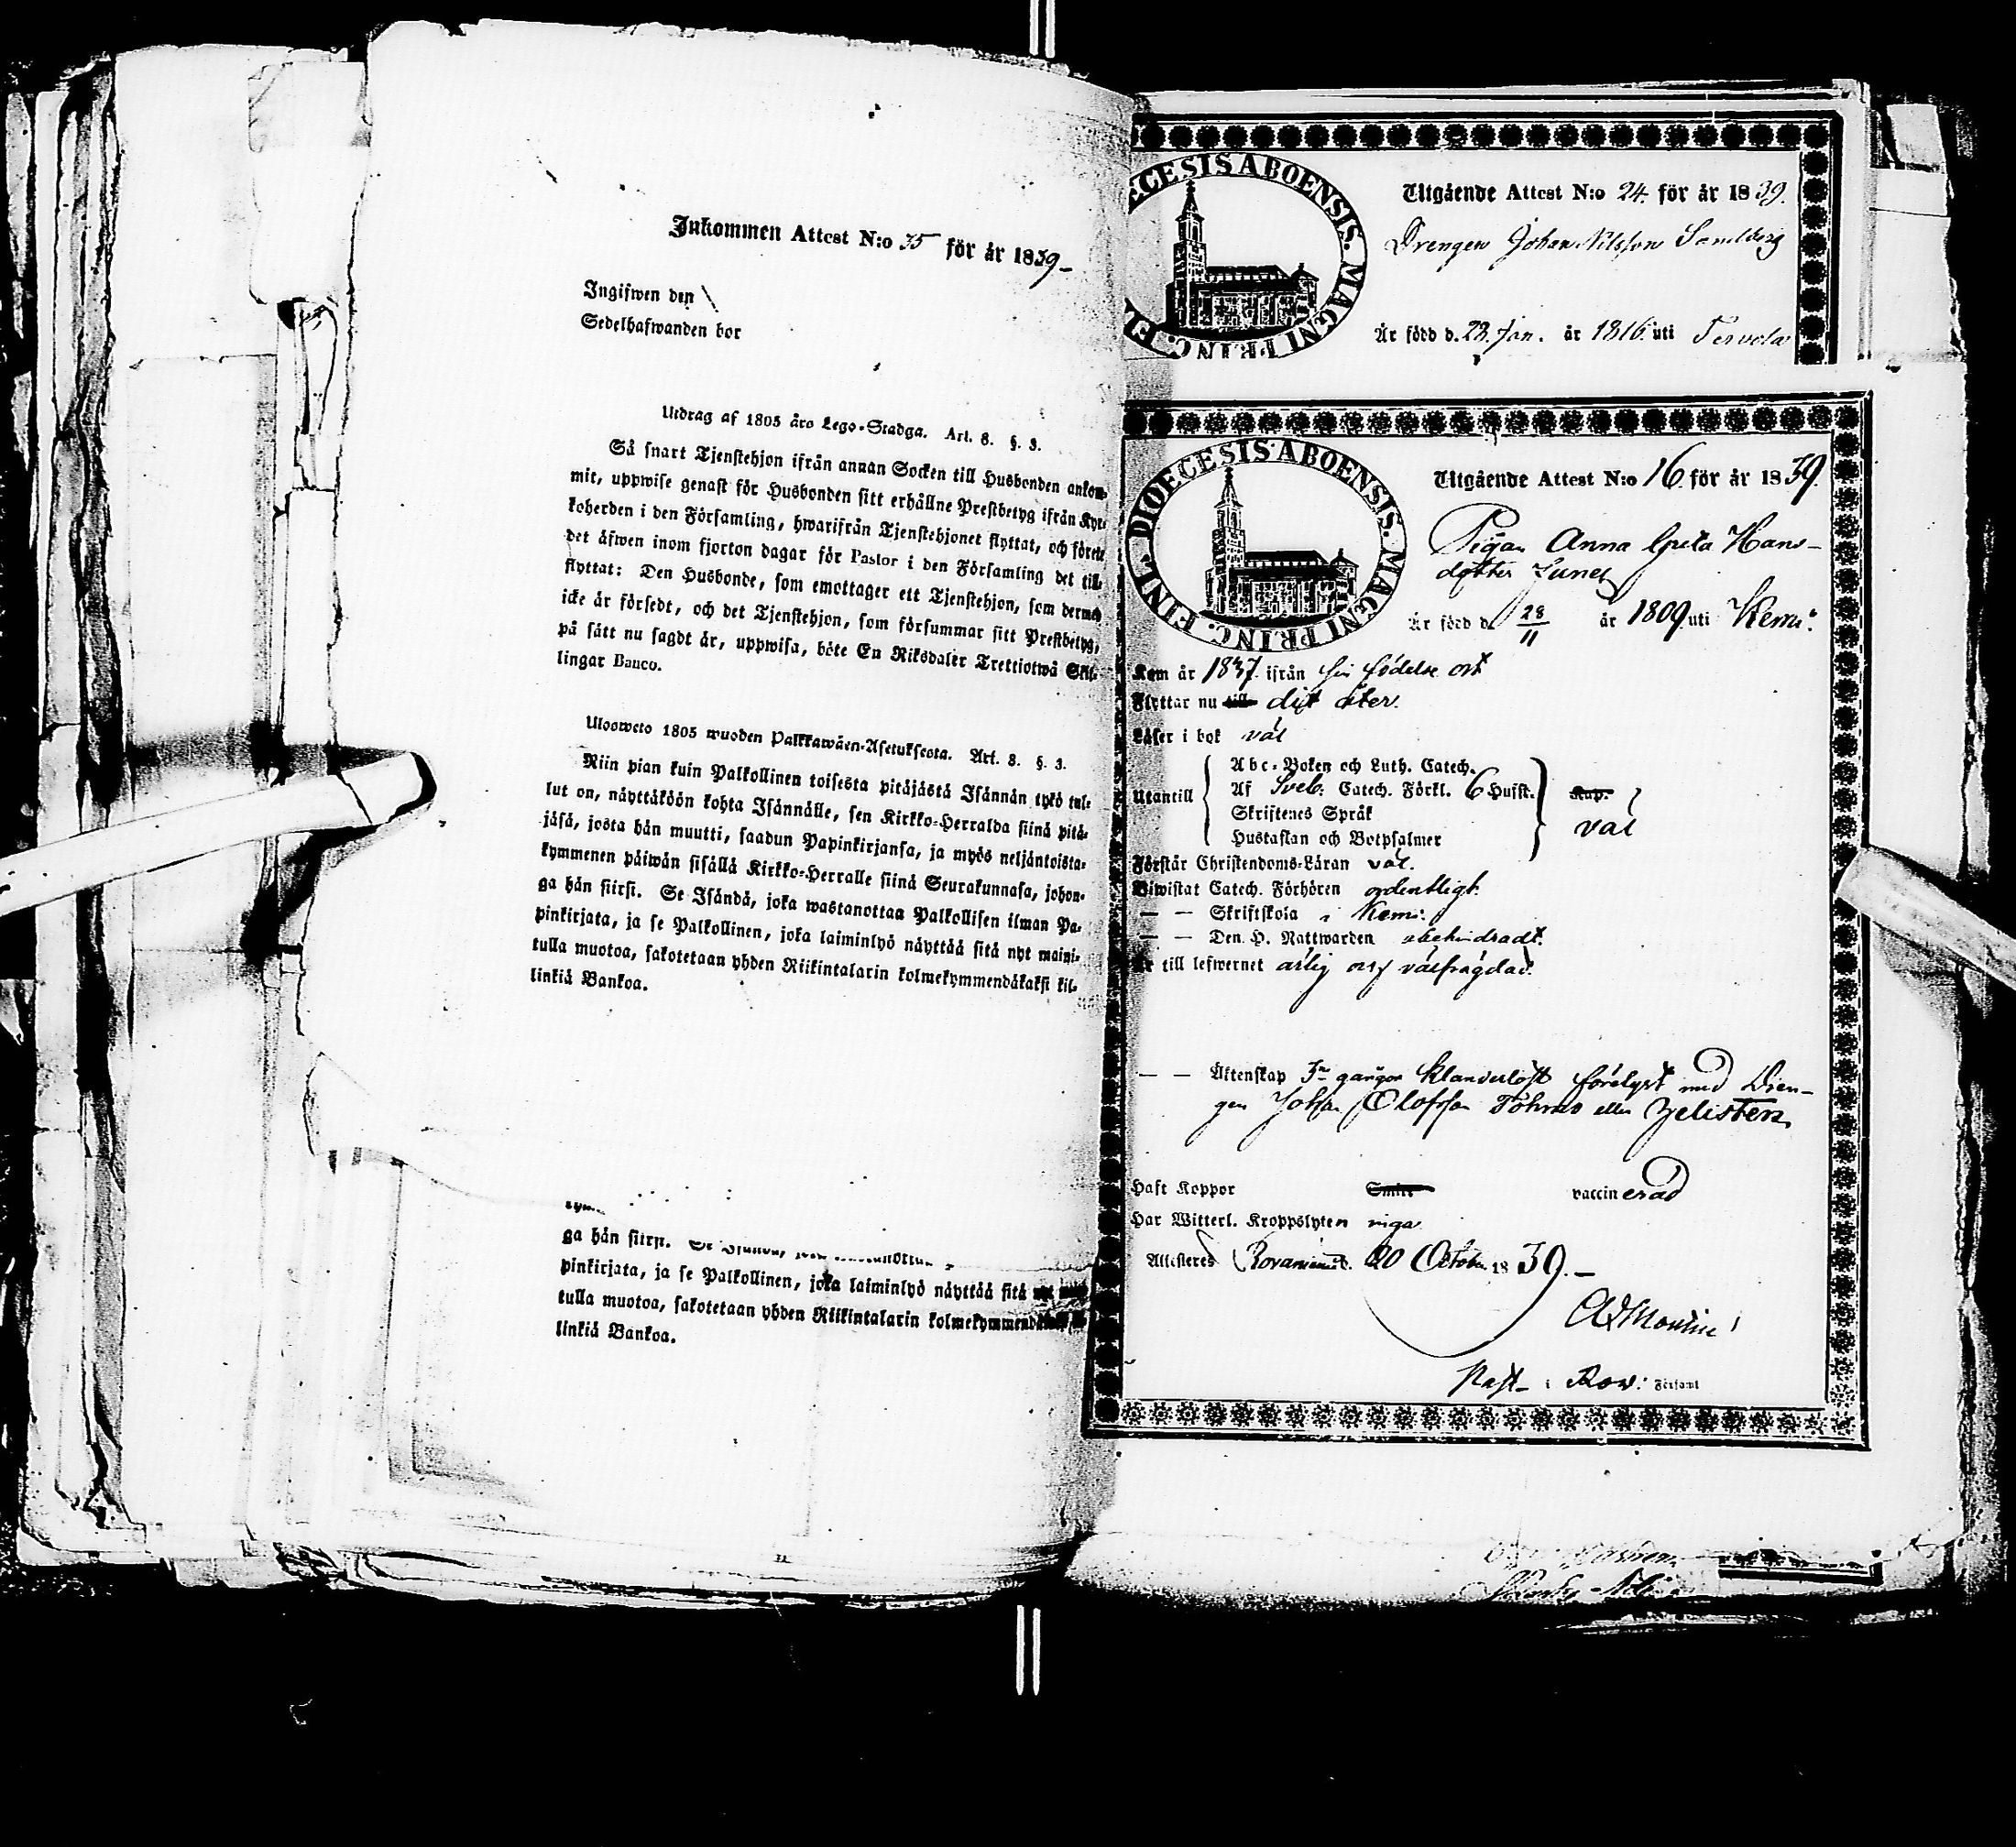 Inkommen Attest N:o 35 för år 1839
Ingifwen den
Sedelhafwanden bor
Utdrag af 1805 års Lego-Stadga. Art. 8. §. 3.
Så snart Tjenstehjon ifrån annan Socken till Husbonden ankom-
mit, uppwise genast för Husbonden sitt erhållne Prestbetyg ifrån Kyr-
koherden i den Församling, hwarifrån Tjenstehjonet flyttat, och förete
det äfwen inom fjorton dagar för Pastor i den Församling det till-
flyttat: Den Husbonde, som emottager ett Tjenstehjon, som dermed
icke är försedt, och det Tjenstehjon, som försummar sitt Prestbetyg,
på sätt nu sagdt är, uppwisa, böte En Riksdaler Trettiotwå Skil-
lingar Banco.
Ulosweto 1805 wuoden Palkkawäen-Asetuksesta. Art. 8. §. 3.
Niin pian kuin Palkollinen toisesta pitäjästä Isännän tykö tul-
lut on, näyttäköön kohta Isännälle, sen Kirkko-Herralda siinä pitä-
jäsä, josta hän muutti, saadun Papinkirjansa, ja myös neljäntoista-
kymmenen päiwän sisällä Kirkko-Herralle siinä Seurakunnasa, johon-
ga hän siirsi. Se Isändä, joka wastanottaa Palkollisen ilman Pa-
pinkirjata, ja se Palkollinen, joka laiminlyö näyttää sitä nyt maini-
tulla muotoa, sakotetaan yhden Riikintalarin kolmekymmendäkaksi kil-
linkiä Bankoa.
ga hän siirsi. Se
pinkirjata, ja se Palkollinen, joka laiminlyö näyttää sitä nyt
tulla muotoa, sakotetaan yhden Riikintalarin
linkiä Bankoa.
DIOECESIS ABOENSIS. MAGNI PRINC.
Utgående Attest N:o 24. för år 1839.
Drengen Johan Nilsson Sandberg
Är född d. 28. Jan. år 1816. uti Tervola
DIOECESIS ABOENSIS. MAGNI PRINC. FINL.
Utgående Attest N:o 16 för år 1839.
Pigan Anna Greta Hans-
dotter Lund
Är född d. 28/11 år 1809 uti Kemi.
Kom år 1837 ifrån sin födelse ort
Flyttar nu till dit åter.
Läser i bok väl
Abc-Boken och Luth. Catech.
Utantill Af Sveb. Catech. Förkl. 6 Hufst. Kap.
Skriftenes Språk väl
Hustaflan och Botpsalmer
Förstår Christendoms-Läran väl.
Biwistat Catech. Förhören ordentligt
— — Skriftskola i Kemi.
— — Den H. Nattwarden obehindradt.
Är till lefwernet ärlig och välfrägdad.
— — Äktenskap 3ne gångor klanderlöst förelyst med Dren-
gen Johan Olofsson Töhnes eller Zelisten
Haft Koppor Smitt vaccinerad
Har Witterl. Kroppslyten inga
Attesteres Rovaniemi d. 20 October 1839.
Past. i Rov: Församl